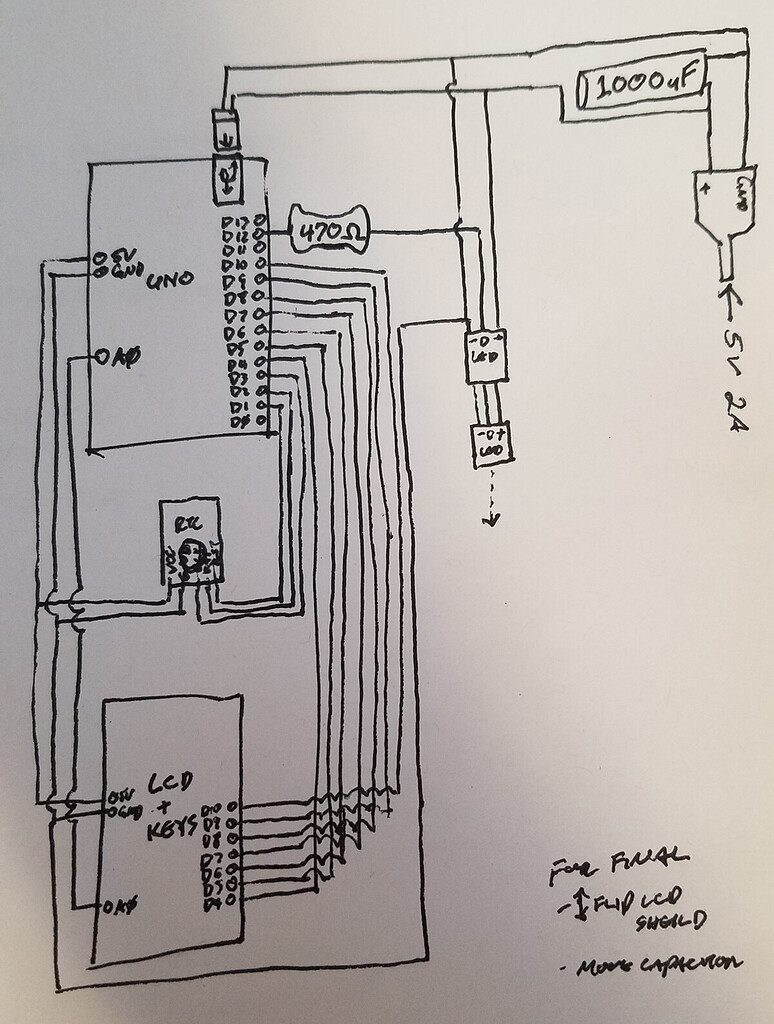 1000uF
+
GND
5V 2A
D13
D12
D11
D10
D9
D8
D7
D6
D5
D4
D3
D2
D1
D0
470Ω
5V
GND
UNO
AØ
- D +
LED
- D +
LED
RTC
VCC
LCD
+
KEYS
5V
GND
AØ
D10
D9
D8
D7
D6
D5
D4
FOR FINAL
- ↕ FLIP LCD
SHEILD
- MOVE CAPACITOR